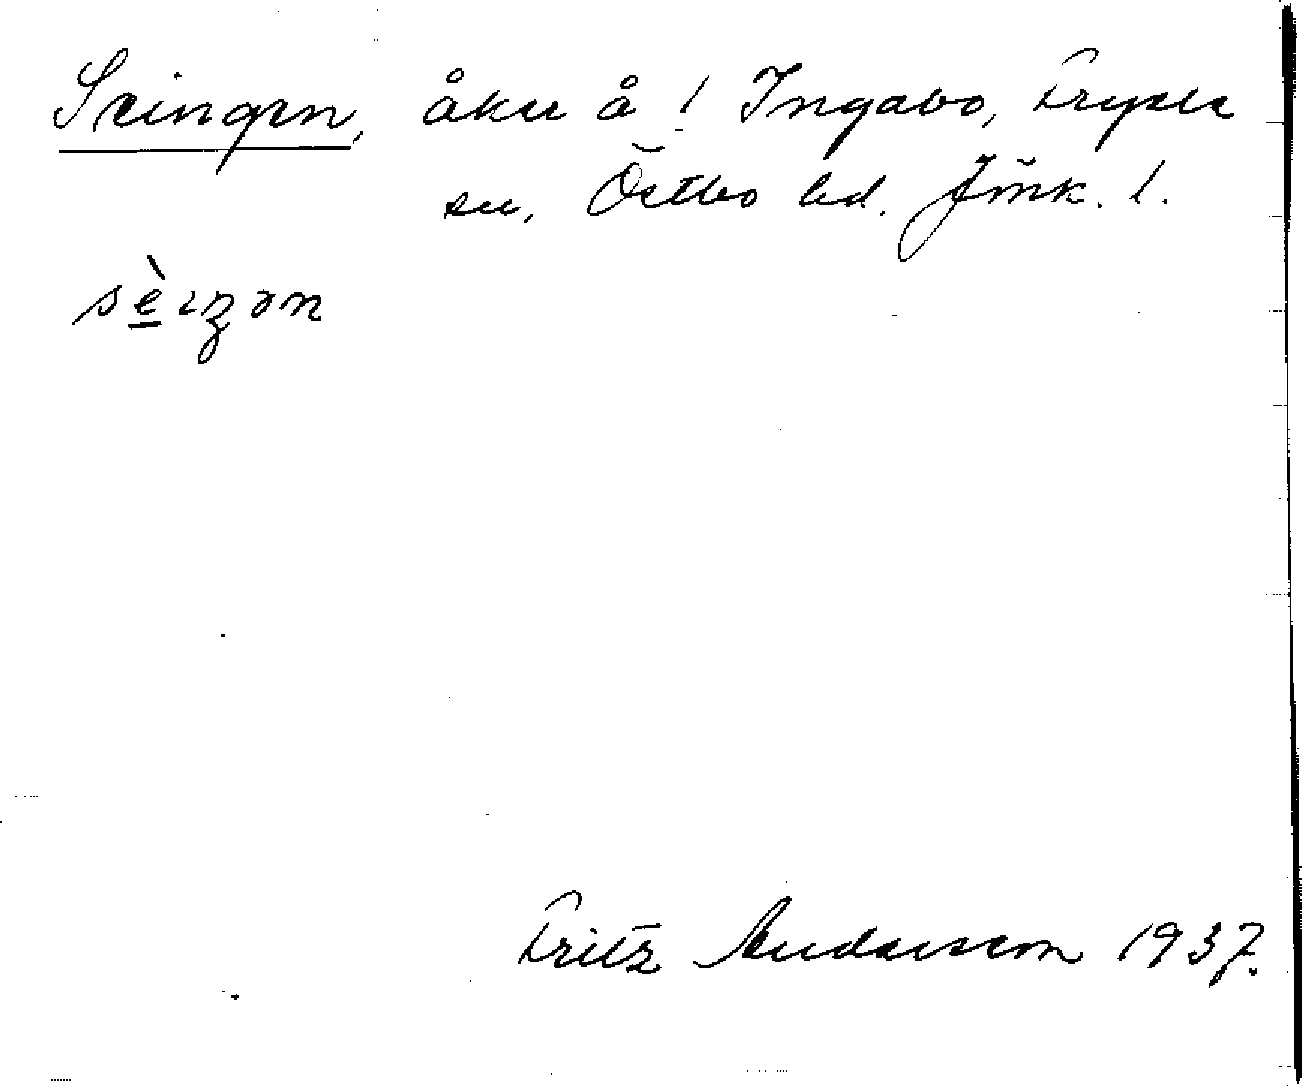 Seingen, åker å 1 Ingabo, Fryele
sn, Östbo hd. Jönk. l.
sèıŋən
Fritz Andersson 1937.